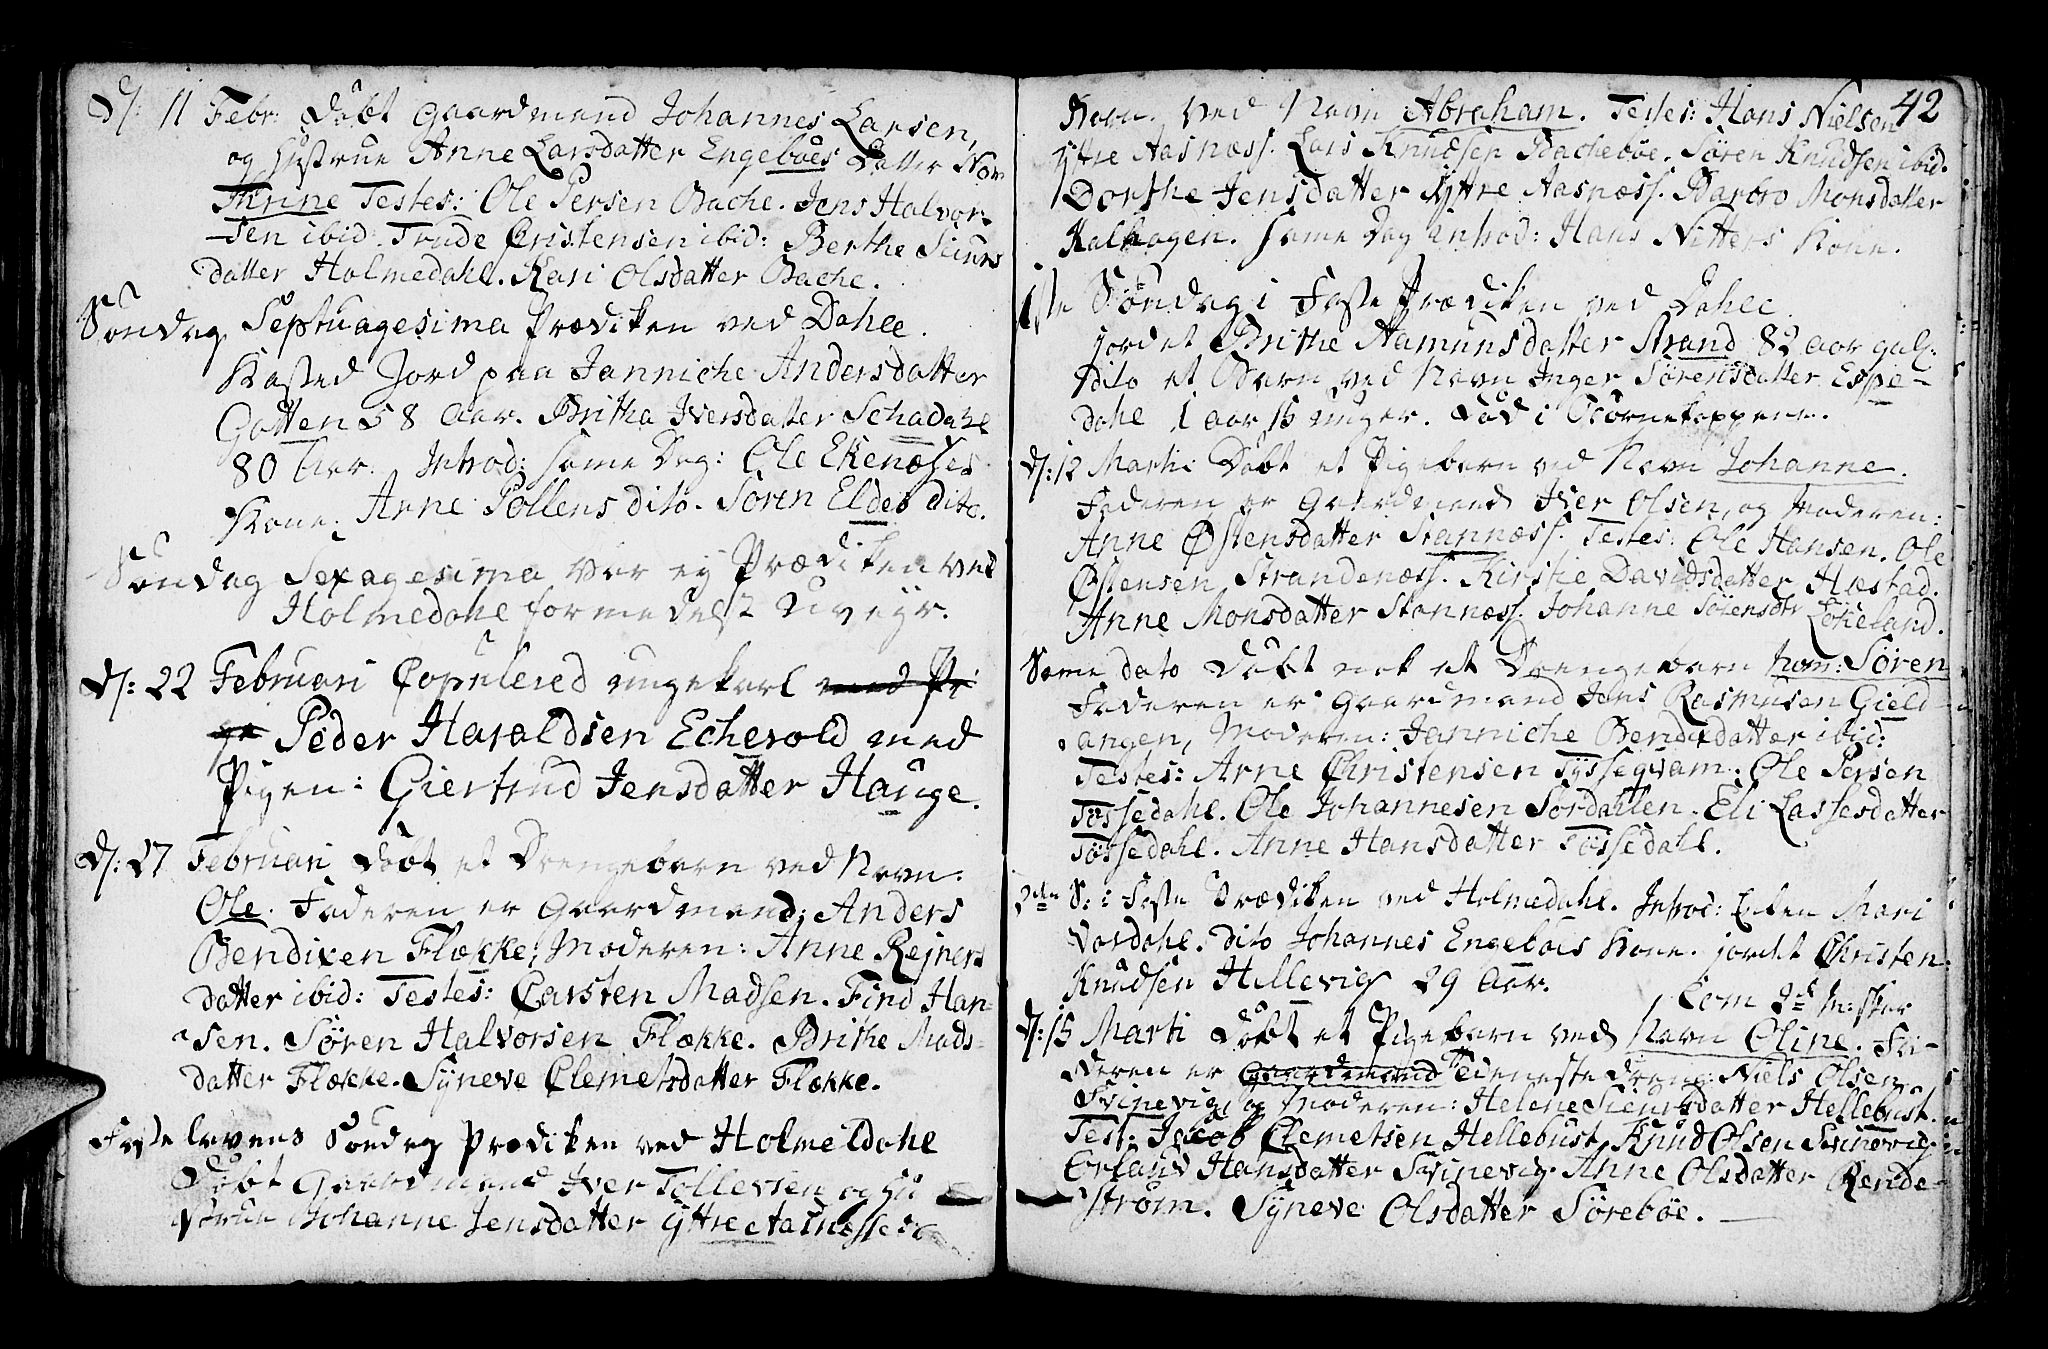 D: 11 Febr: Døbt Gaardmand Johannes Larsen,
og Hustrue Anne Larsdatter Engeboes Datter Nom:
Thrine Testes: Ole Persen Bache. Jens Halvor-
sen ibid: Trude Cristensen ibid: Berthe Siurs
datter Holmedahl. Kari Olsdatter Bache.
Søndag Septuagesima Prædiken ved Dahle.
Kasted Jord paa Janniche Andersdatter
Gotten 58 Aar. Britha Iversdatter Schadahl
80 Aar. Introd: same Dag: Ole Ekenæses
Kone. Anne Tollens dito. Søren Eldes dito.
Søndag Sexagesima var ej Prædiken ved
Holmedahl formedelst Uvejr.
D: 22 Februari Copulered ungekarl med Pi
ge Peder Haraldsen Echevold med
Pigen: Giertrud Jensdatter Hauge.
D: 27 Februari Døbt et Drengebarn ved Navn:
Ole. Faderen er Gaardmand: Anders
Bendixen Flække, Moderen: Anne Rejners
datter ibid: Testes: Carsten Madsen. Find Han-
sen. Søren Halvorsen Flække. Brithe Mads-
datter Flække. Syneve Clemetsdatter Flække.
Fastelavens Søndag Prædiken ved Holmeldahl
Døbt Gaardmand Iver Tollevsen og Hu
strue Johanne Jensdatter Yttre
42
Barn. ved Navn Abraham. Testes: Hans Nielsen
Yttre Aasnæss. Lars Knudsen Bachebøe. Søren Knudsen ibid.
Dorthe Jensdatter Yttre Aasnæss. Barbro Monsdatter
Kalhagen. Same Dag introd: Hans Nitters Kone.
1ste Søndag i Faste Prædiken ved Dahle.
jordet Brithe Aamunsdatter Strand 82 aar gal:
Dito et Barn ved Navn Inger Sørensdatter Espe-
dahl 1 aar 15 uger. Død i Børnekoppene.
D: 12 Martii Døbt et Pigebarn ved Navn Johanne.
Faderen er Gaardmand Iver Olsen, og Moderen:
Anne Østensdatter Stannæss. Testes: Ole Hansen. Ole
Østensen Strandenæss. Kirstie Davidsdatter Hæstad.
Anne Monsdatter Stannæss. Johanne Sørensdtr Løkeland.
Same dato Døbt nok et Drengebarn nom: Søren
Faderen er Gaardmand Jens Rasmusen Gield-
angen, Moderen: Janniche Bendixdatter ibid:
Testes: Arne Christensen Tysseqvam. Ole Persen
Tøssedahl. Ole Johannesen Sørdahlen. Eli Lassesdatter
Tøssedahl. Anne Hansdatter Tøssedahl.
2den S: i Faste Prædiken ved Holmedahl. Introd: Enken Mari
Vardahl. Dito Johannes Engeboes Kone. jordet Christen
Knudsen Hillevig 29 Aar.
D: 15 Marti Døbt et Pigebarn ved Navn Oline. Fa-
deren er Gaardmand Tieneste Dreng: Niels Olsen
Svinevig, og Moderen: Helene Siursdatter Hellebust.
Test: Jacob Clemetsen Hellebust, Knud Olsen Svinevig.
Erland Hansdatter Svinevig. Anne Olsdatter Rende-
strøm. Syneve Olsdatter Sørebøe.